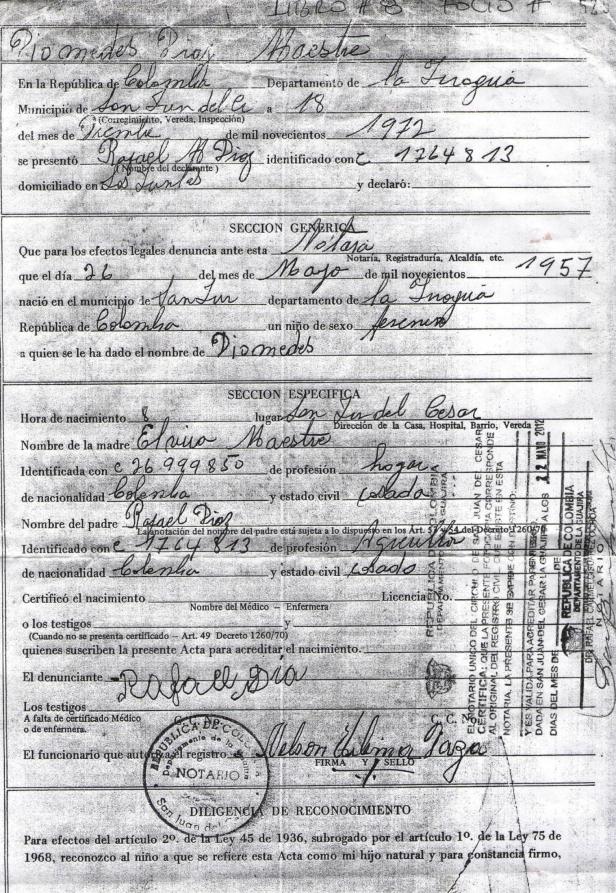 LIBRO # 8 FOLIO # 525
Diomedes Diaz Maestre
En la República de Colombia Departamento de la Guagira
Municipio de San Juan del C. a 18
(Corregimiento, Vereda, Inspección)
del mes de de mil novecientos 1972
se presentó Rafael M Diaz identificado con C 1764813
(Nombre del declarante)
domiciliado en y declaró:
SECCION GENERICA
Que para los efectos legales denuncia ante esta Notaria
Notaría, Registraduría, Alcaldía, etc.
que el día 26 del mes de Mayo de mil novecientos 1957
nació en el municipio de San Juan departamento de la Guagira
República de Colombia un niño de sexo
a quien se le ha dado el nombre de Diomedes
SECCION ESPECIFICA
Hora de nacimiento 8 lugar San Juan del Cesar
Dirección de la Casa, Hospital, Barrio, Vereda
Nombre de la madre Elvira Maestre
Identificada con C 26 999850 de profesión hogar
de nacionalidad Colombia y estado civil casada
Nombre del padre Rafael Diaz
La anotación del nombre del padre está sujeta a lo dispuesto en los Art. 53 y 54 del Decreto 1260/70
Identificado con C 1764813 de profesión Agricultor
de nacionalidad Colombia y estado civil casado
Certificó el nacimiento Licencia No.
Nombre del Médico – Enfermera
o los testigos y
(Cuando no se presenta certificado – Art. 49 Decreto 1260/70)
quienes suscriben la presente Acta para acreditar el nacimiento.
El denunciante Rafael Dia
Los testigos
A falta de certificado Médico
o de enfermera.
C. C. No.
C. C. No.
El funcionario que autoriza el registro Nelson
FIRMA Y SELLO
REPUBLICA DE COLOMBIA
Departamento de la Guajira
NOTARIO
San Juan del C
DILIGENCIA DE RECONOCIMIENTO
Para efectos del artículo 2º. de la Ley 45 de 1936, subrogado por el artículo 1º. de la Ley 75 de
1968, reconozco al niño a que se refiere esta Acta como mi hijo natural y para constancia firmo,
REPUBLICA DE COLOMBIA
DEPARTAMENTO DE LA GUAJIRA
EL NOTARIO UNICO DEL CIRCULO DE SAN JUAN DEL CESAR
CERTIFICA: QUE LA PRESENTE FOTOCOPIA CORRESPONDE
AL ORIGINAL DEL REGISTRO CIVIL QUE EXISTE EN ESTA
NOTARIA, LA PRESENTE SE EXPIDE CON DESTINO:
Y ES VALIDA PARA ACREDITAR PARENTESCO
DADA EN SAN JUAN DEL CESAR LA GUAJIRA A LOS 22 MAYO 2012
DIAS DEL MES DE DE
REPUBLICA DE COLOMBIA
DEPARTAMENTO DE LA GUAJIRA
NOTARIO